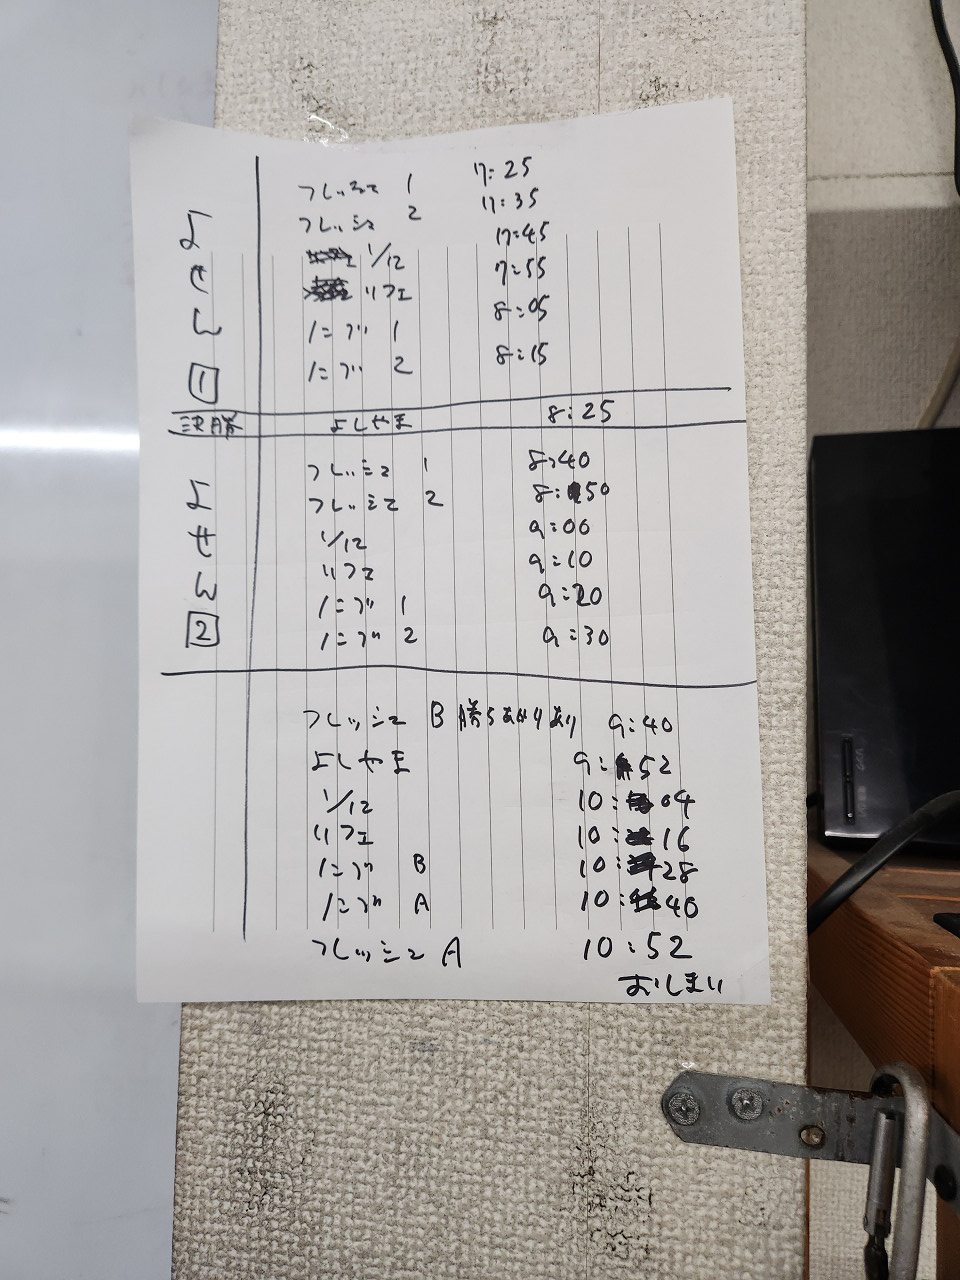 よせん 1
フレッシュ 1 17:25
フレッシュ 2 17:35
1/12 17:45
リフェ 7:55
ノービ 1 8:05
ノービ 2 8:15
決勝 よしやま 8:25
よせん 2
フレッシュ 1 8:40
フレッシュ 2 8:50
1/12 9:00
リフェ 9:10
ノービ 1 9:20
ノービ 2 9:30
フレッシュ B 勝ちあがりあり 9:40
よしやま 9:52
1/12 10:04
リフェ 10:16
ノービ B 10:28
ノービ A 10:40
フレッシュ A 10:52
おしまい